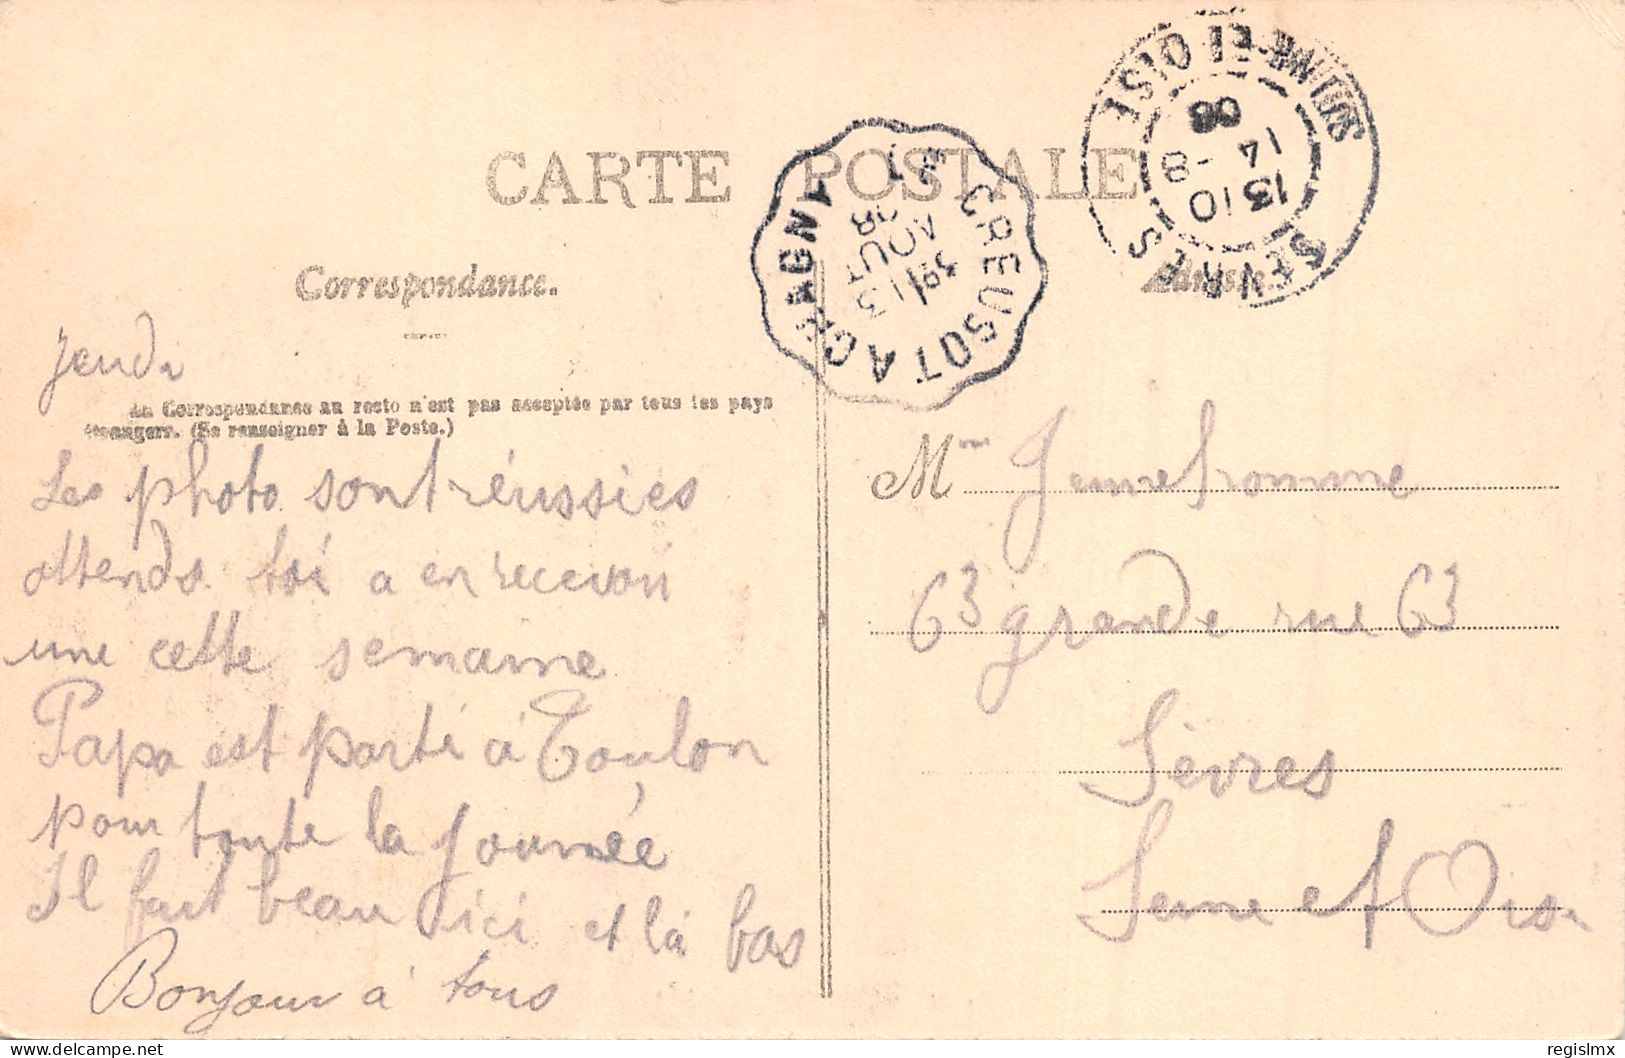 CARTE POSTALE
Correspondance.
Adresse.
Jeudi
La Correspondance au recto n'est pas acceptée par tous les pays
étrangers. (Se renseigner à la Poste.)
Les photo sont réussies
attends toi a en recevoir
une cette semaine
Papa est parti à Toulon
pour toute la journée
Il fait beau ici et là bas
Bonjour à tous
LE CREUSOT A CHAGNY
13
AOUT
08
SEVRES
SEINE-ET-OISE
13 10
14 -8
08
Mme Jeunehomme
63 grande rue 63
Sèvres
Seine et Oise
regislmx